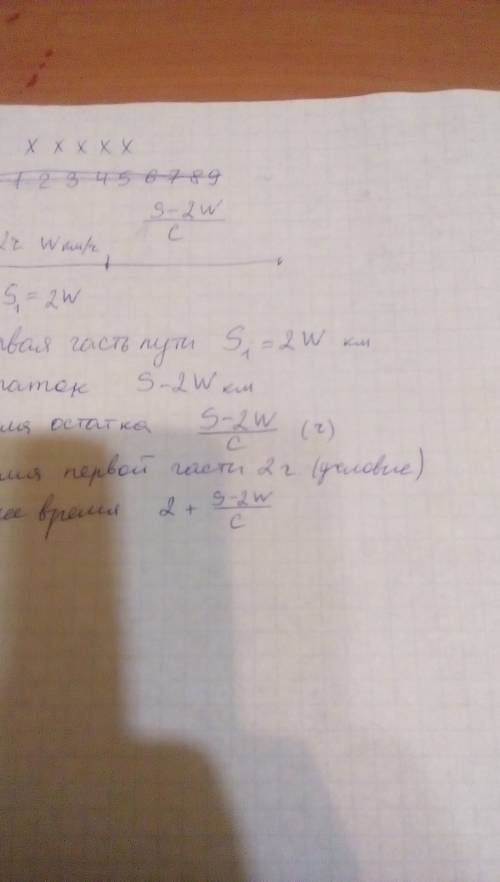 x x x x x
1 2 3 4 5 6 7 8 9
S-2W
C
2ч W км/ч
S₁ = 2W
рвая часть пути S₁ = 2W км
таток S-2W км
мя остатка S-2W/C (ч)
мя первой части 2ч (условие)
ее время 2 + S-2W/C